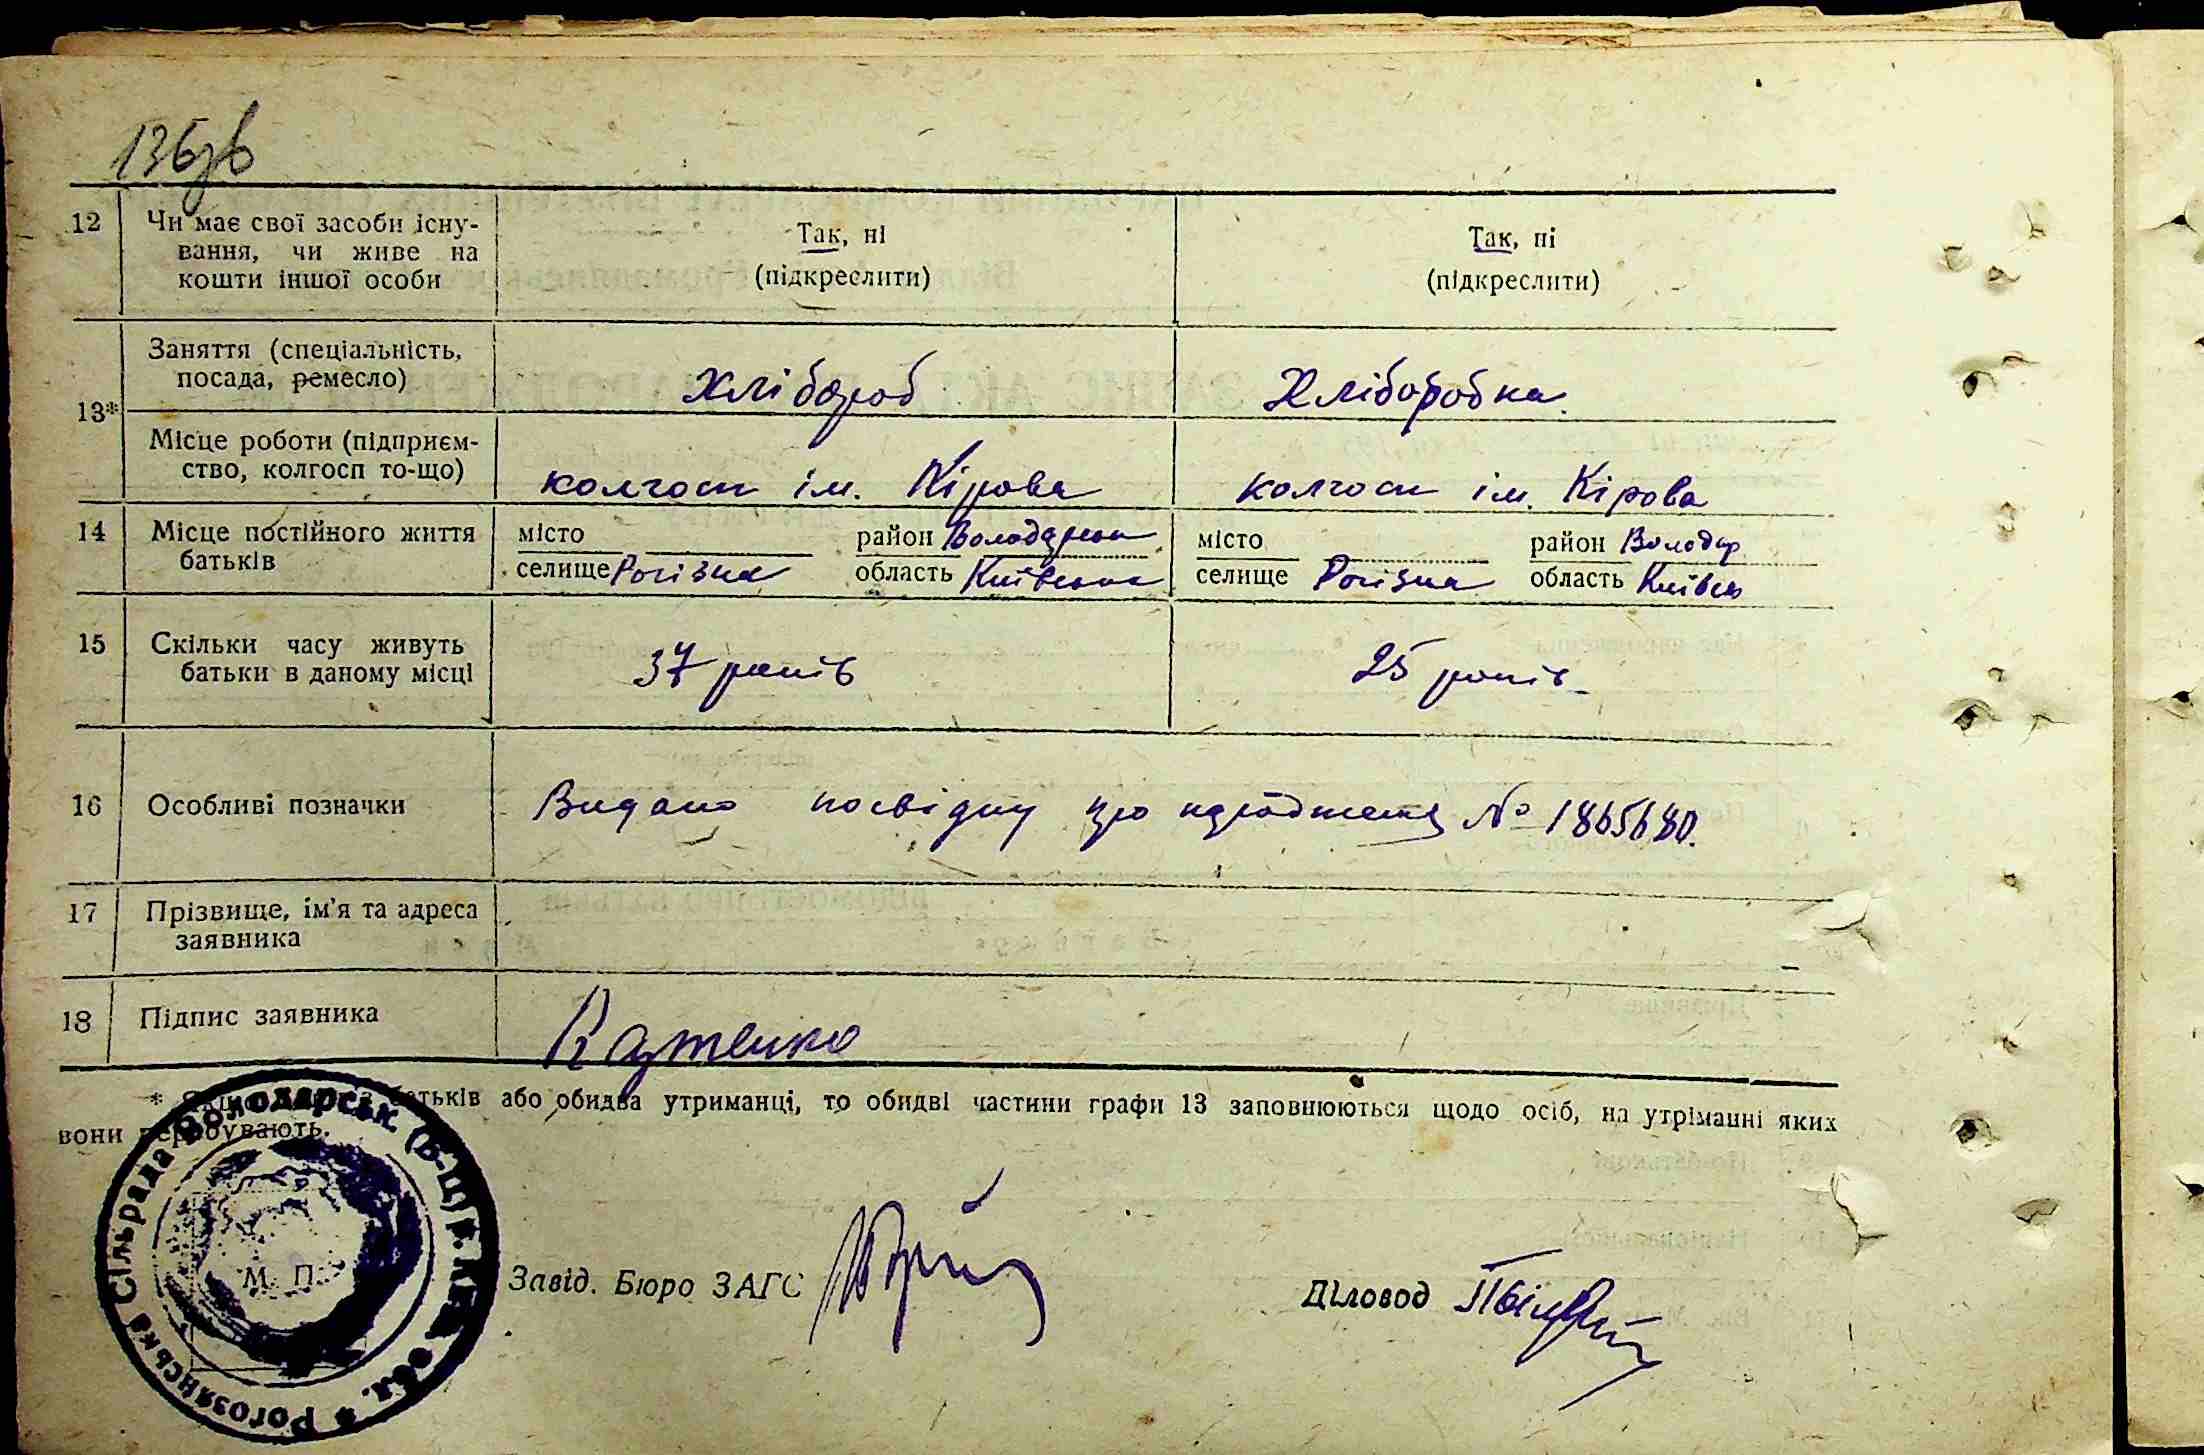 136зв
12 Чи має свої засоби існу-
вання, чи живе на
кошти іншої особи
Так, ні
(підкреслити)
Так, ні
(підкреслити)
13*
Заняття (спеціальність,
посада, ремесло)
Хлібороб
Хліборобка
Місце роботи (підприєм-
ство, колгосп то-що)
колгосп ім. Кірова
колгосп ім. Кірова
14 Місце постійного життя
батьків
місто район Володарськ
селище Рогізна область Київська
місто район Володар
селище Рогізна область Київсь
15 Скільки часу живуть
батьки в даному місці
37 років
25 років
16 Особливі позначки
Видано посвідку про народження № 1865680.
17 Прізвище, ім'я та адреса
заявника
18 Підпис заявника
* батьків або обидва утриманці, то обидві частини графи 13 заповнюються щодо осіб, на утріманні яких
вони перебувають.
Рогозянська Сільрада Володарськ. (Б-Ц) р. обл.
М. П.
Завід. Бюро ЗАГС
Діловод